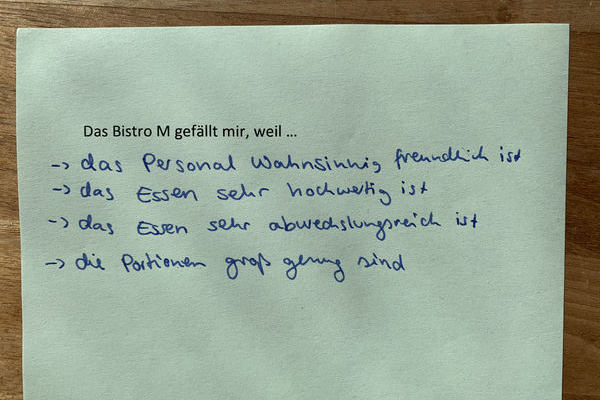 Das Bistro M gefällt mir, weil ...
-> das Personal Wahnsinnig freundlich ist
-> das Essen sehr hochwertig ist
-> das Essen sehr abwechslungsreich ist
-> die Portionen groß genug sind